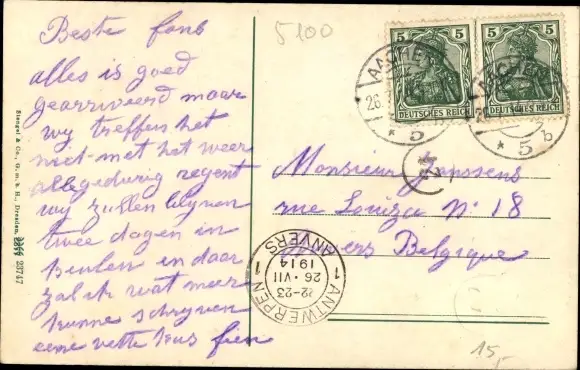 Beste fons
alles is goed
gearriveerd maar
wy treffen het
niet met het weer
allegedurig regent
wy zullen blyven
twee dagen in
keulen en daar
zal ik wat meer
kunne schryven
eene vette kus fien
5100
5 5
DEUTSCHES REICH DEUTSCHES REICH
AACHEN
26.
* 5
AACHEN
26.
* 5 b
24
Monsieur Janssens
rue Louiza No 18
Anvers Belgique
1 ANTWERPEN 1
22-23
26 · VII
1914
ANVERS
15,-
Stengel & Co., G. m. b. H., Dresden,
23747